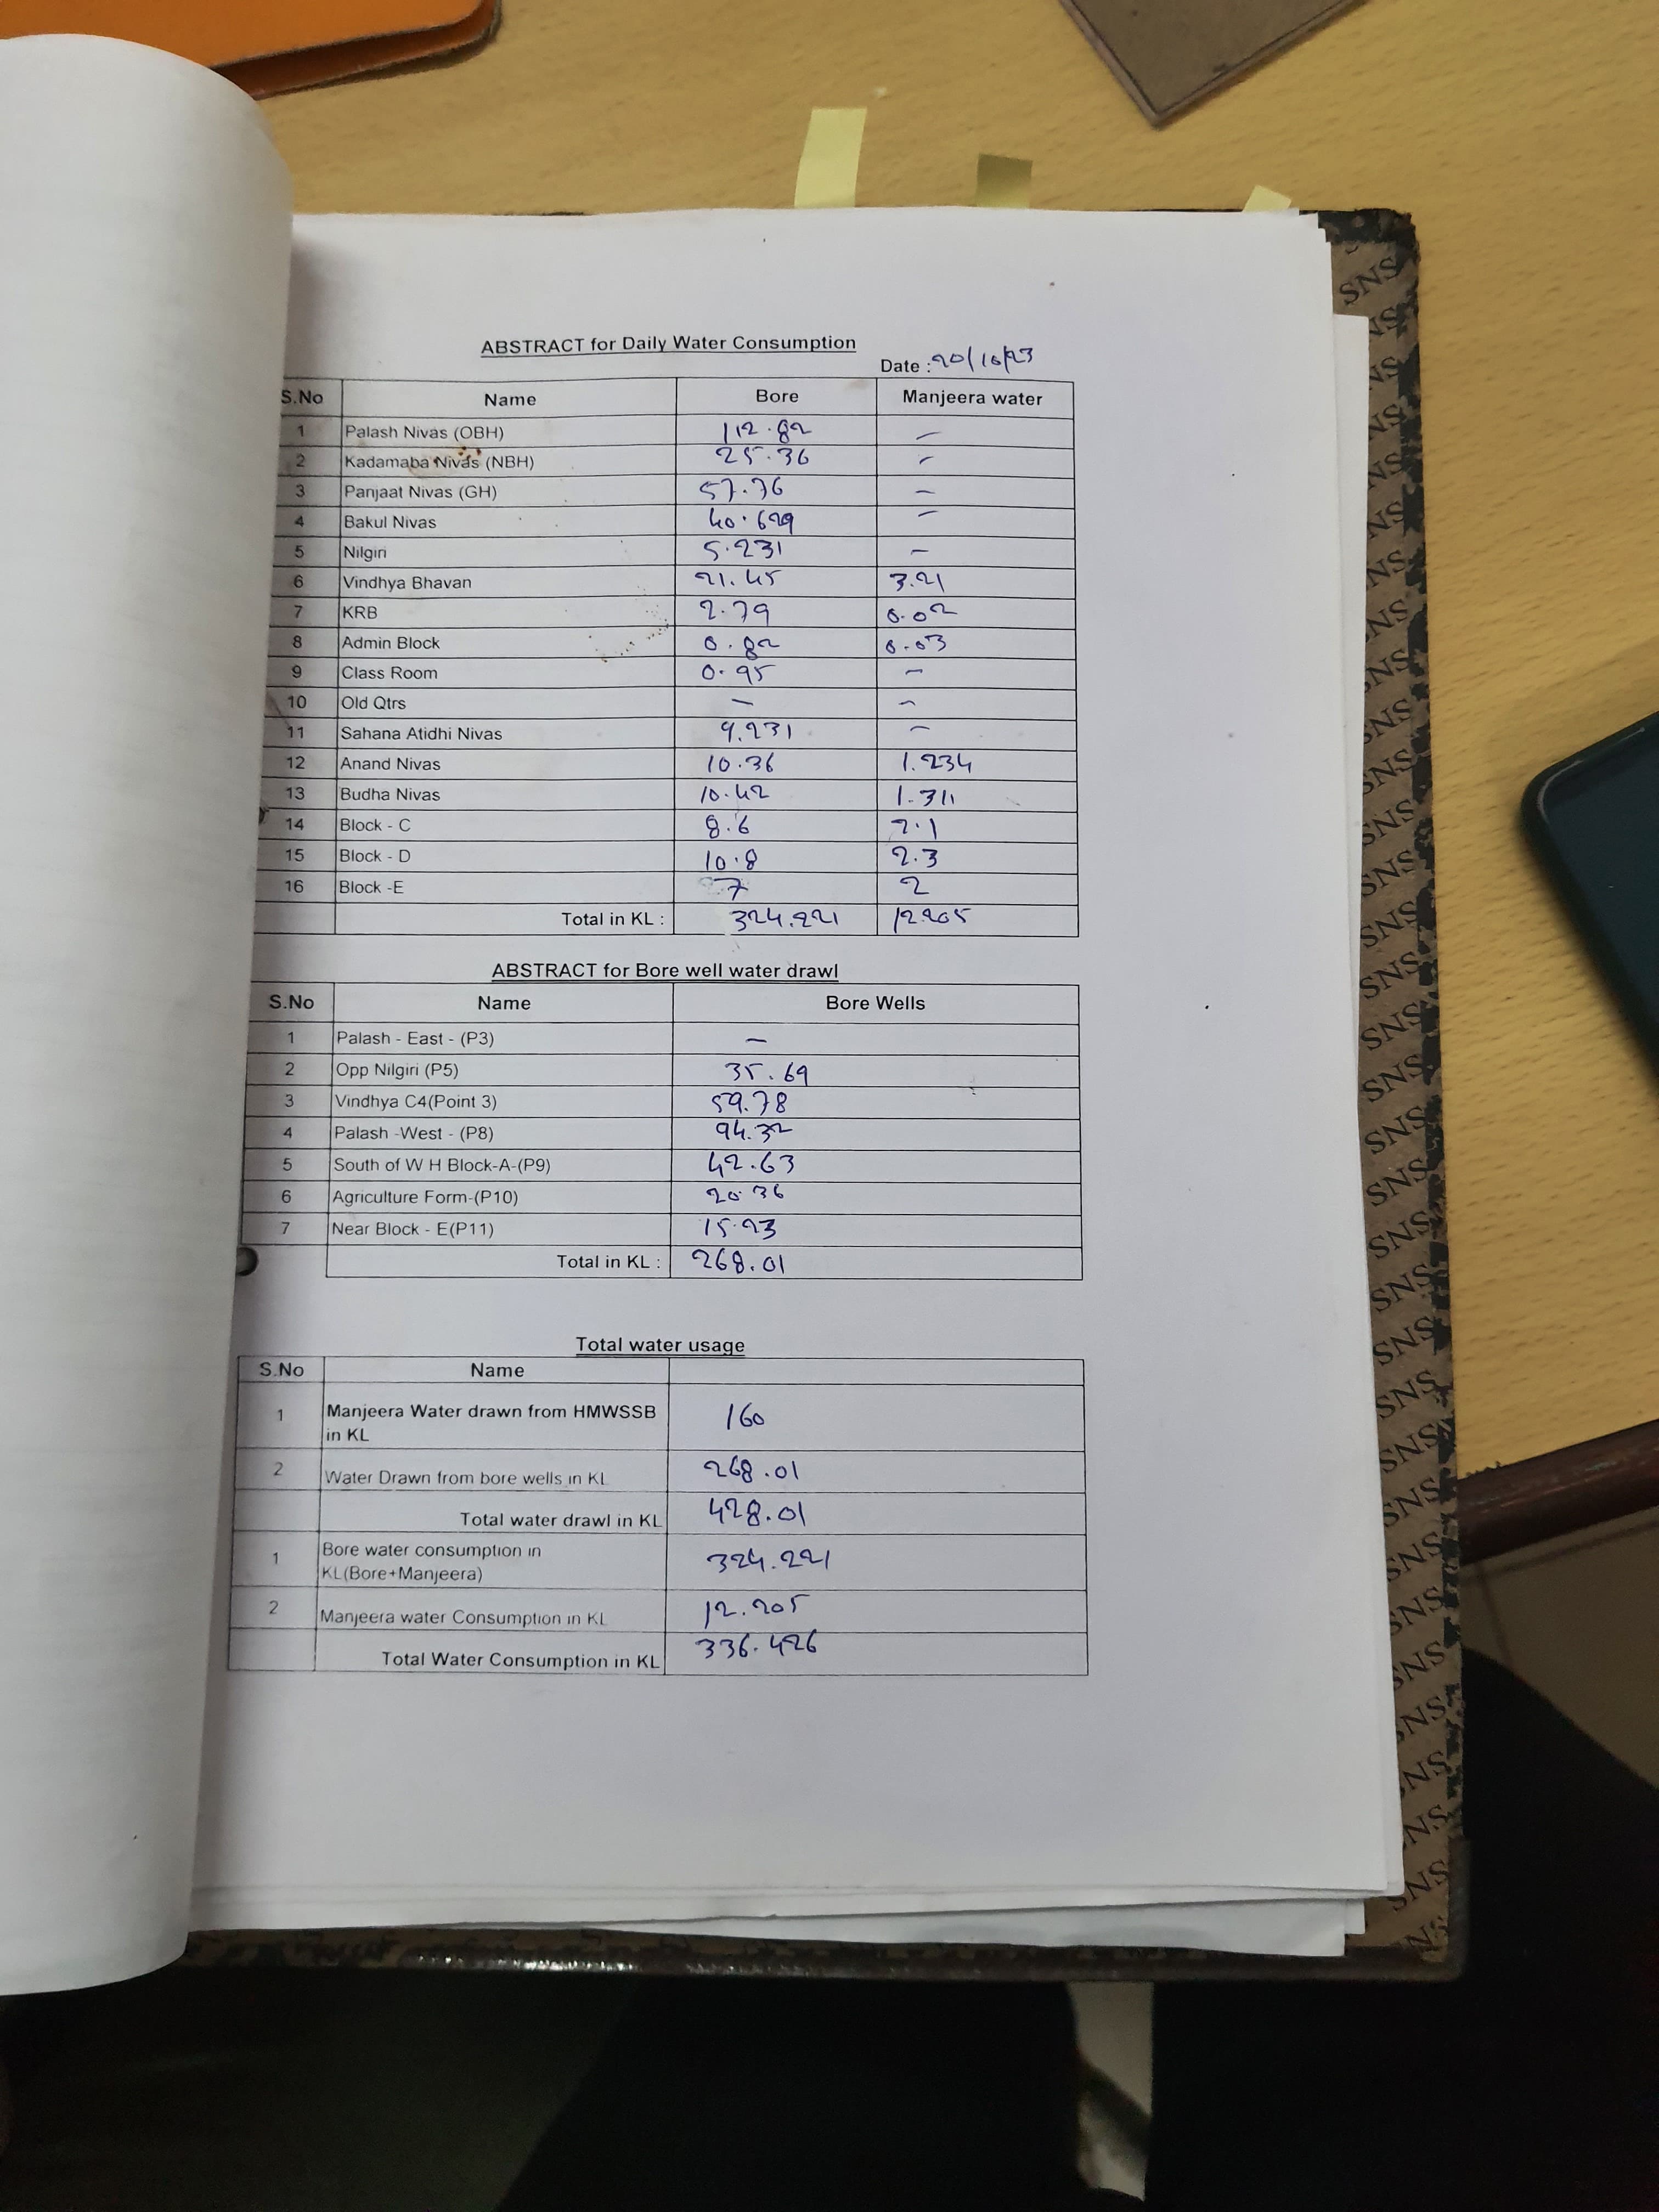 ABSTRACT for Daily Water Consumption
Date : 20/10/23
S.No Name Bore Manjeera water
1 Palash Nivas (OBH) 112.82 –
2 Kadamaba Nivas (NBH) 25.36 –
3 Panjaat Nivas (GH) 57.76 –
4 Bakul Nivas 40.629 –
5 Nilgiri 5.231 –
6 Vindhya Bhavan 21.45 3.21
7 KRB 2.79 0.02
8 Admin Block 0.82 0.03
9 Class Room 0.95 –
10 Old Qtrs – –
11 Sahana Atidhi Nivas 9.231 –
12 Anand Nivas 10.36 1.234
13 Budha Nivas 10.42 1.311
14 Block - C 8.6 2.1
15 Block - D 10.8 2.3
16 Block -E 7 2
Total in KL : 324.221 12.205
ABSTRACT for Bore well water drawl
S.No Name Bore Wells
1 Palash - East - (P3) –
2 Opp Nilgiri (P5) 35.69
3 Vindhya C4(Point 3) 59.78
4 Palash -West - (P8) 94.32
5 South of W H Block-A-(P9) 42.63
6 Agriculture Form-(P10) 20.36
7 Near Block - E(P11) 15.23
Total in KL : 268.01
Total water usage
S.No Name
1 Manjeera Water drawn from HMWSSB in KL 160
2 Water Drawn from bore wells in KL 268.01
Total water drawl in KL 428.01
1 Bore water consumption in KL(Bore+Manjeera) 324.221
2 Manjeera water Consumption in KL 12.205
Total Water Consumption in KL 336.426